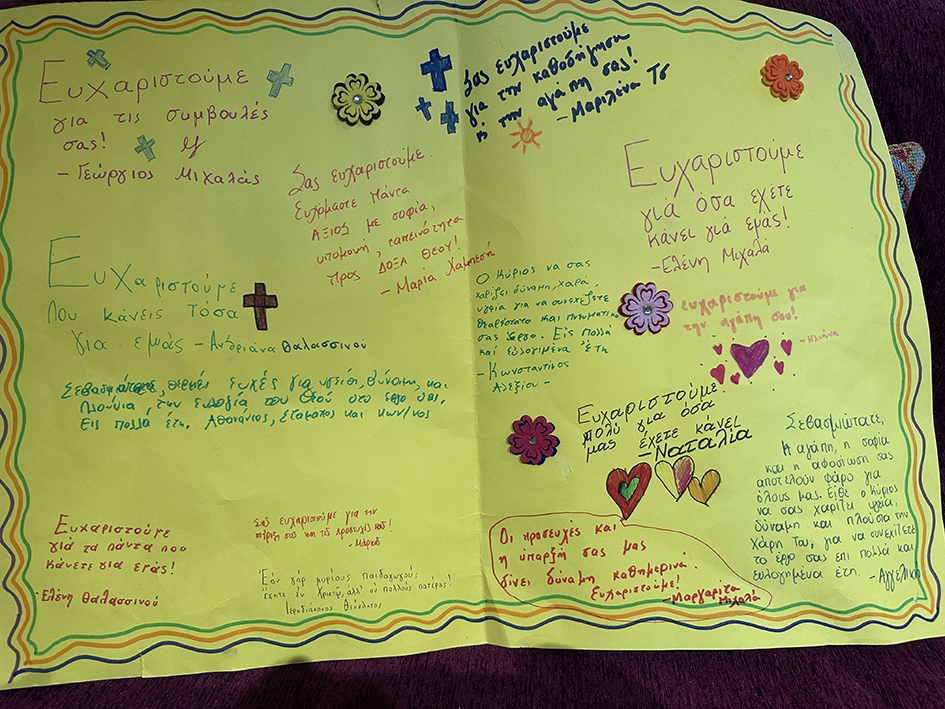 Ευχαριστούμε
για τις συμβουλές
σας!
- Γεώργιος Μιχαλάς
Σας ευχαριστούμε
για την καθοδήγηση
την αγάπη σας!
- Μαριλένα Τσ
Σας ευχαριστούμε.
Ευχόμαστε Πάντα
ΑΞΙΟΣ με σοφία,
υπομονή, ταπεινότητα
Προς ΔΟΞΑ Θεού!
- Μαρία
Ευχαριστούμε
γιά όσα έχετε
κάνει γιά εμάς!
- Ελένη Μιχαλά
Ευχαριστούμε
Που κάνεις τόσα
Για εμάς - Ανδριάνα Θαλασσινού
Ο Κύριος να σας
χαρίζει δύναμη, χαρά,
υγεία για να συνεχίζετε
θεάρεστο και πνευματικό
σας έργο. Εις πολλά
και ευλογημένα έτη
- Κωνσταντίνος
Αλεξίου -
ευχαριστούμε για
την αγάπη σου!
- Ηλιάνα
θερμές ευχές για υγεία, δύναμη, και
πλούσια, την ευλογία του Θεού στο έργο σας.
Εις πολλά έτη. Αθανάσιος, Στάματος και Κων/νος
Ευχαριστούμε
πολύ για όσα
μας έχετε κάνει
- Ναταλία
Σεβασμιώτατε,
Η αγάπη, η σοφία
και η αφοσίωση σας
αποτελούν φάρο για
όλους μας. Είθε ο Κύριος
να σας χαρίζει υγεία,
δύναμη και πλούσια την
Χάρη Του, για να συνεχίζετε
το έργο σας επί πολλά και
ευλογημένα έτη. - Αγγελική
Ευχαριστούμε
γιά τα πάντα που
κάνετε για εμάς!
- Ελένη Θαλασσινού
Σας ευχαριστούμε για την
στήριξη σας και τις προσευχές σας!
Ἐὰν γὰρ μυρίους παιδαγωγοὺς
ἔχητε ἐν Χριστῷ, ἀλλ' οὐ πολλοὺς πατέρας!
Ιεροδιάκονος Θεόκλητος
Οι προσευχές και
η ύπαρξή σας μας
δίνει δύναμη καθημερινά.
Ευχαριστούμε!
- Μαργαρίτα
Μιχαλά